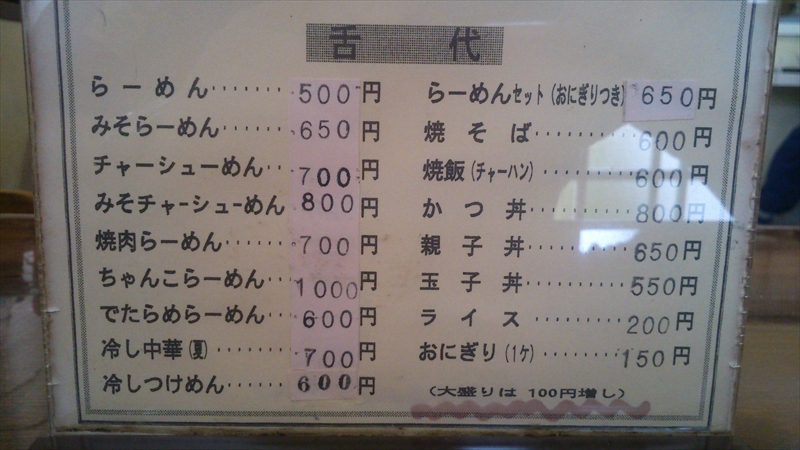 舌代
らーめん········500円
みそらーめん······650円
チャーシューめん···700円
みそチャーシューめん 800円
焼肉らーめん······700円
ちゃんこらーめん···1000円
でたらめらーめん···600円
冷し中華(夏)·······700円
冷しつけめん······600円
らーめんセット(おにぎりつき) 650円
焼そば··········600円
焼飯(チャーハン)·······600円
かつ丼··········800円
親子丼··········650円
玉子丼··········550円
ライス··········200円
おにぎり(1ケ)·······150円
(大盛りは 100円増し)